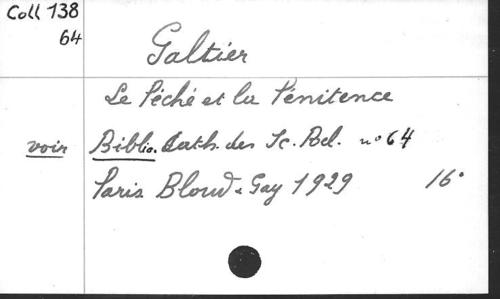 Coll 138
64
Galtier
Le Péché et la Pénitence
voir Biblio. Cath. des Sc. Rel. n° 64
Paris Bloud & Gay 1929 16°